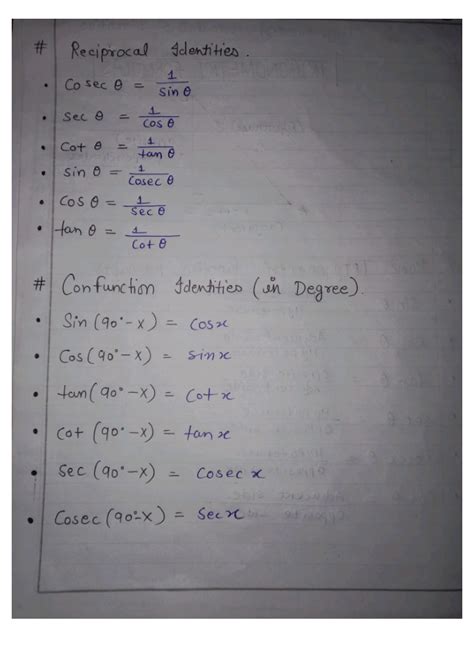 # Reciprocal Identities.
• Cosec θ = 1/sin θ
• sec θ = 1/cos θ
• Cot θ = 1/tan θ
• sin θ = 1/Cosec θ
• Cos θ = 1/Sec θ
• tan θ = 1/Cot θ
# Confunction Identities (in Degree).
• Sin (90°-x) = Cosx
• Cos (90°-x) = sinx
• tan (90°-x) = Cotx
• Cot (90°-x) = tanx
• Sec (90°-x) = Cosec x
• Cosec (90°-x) = Secx